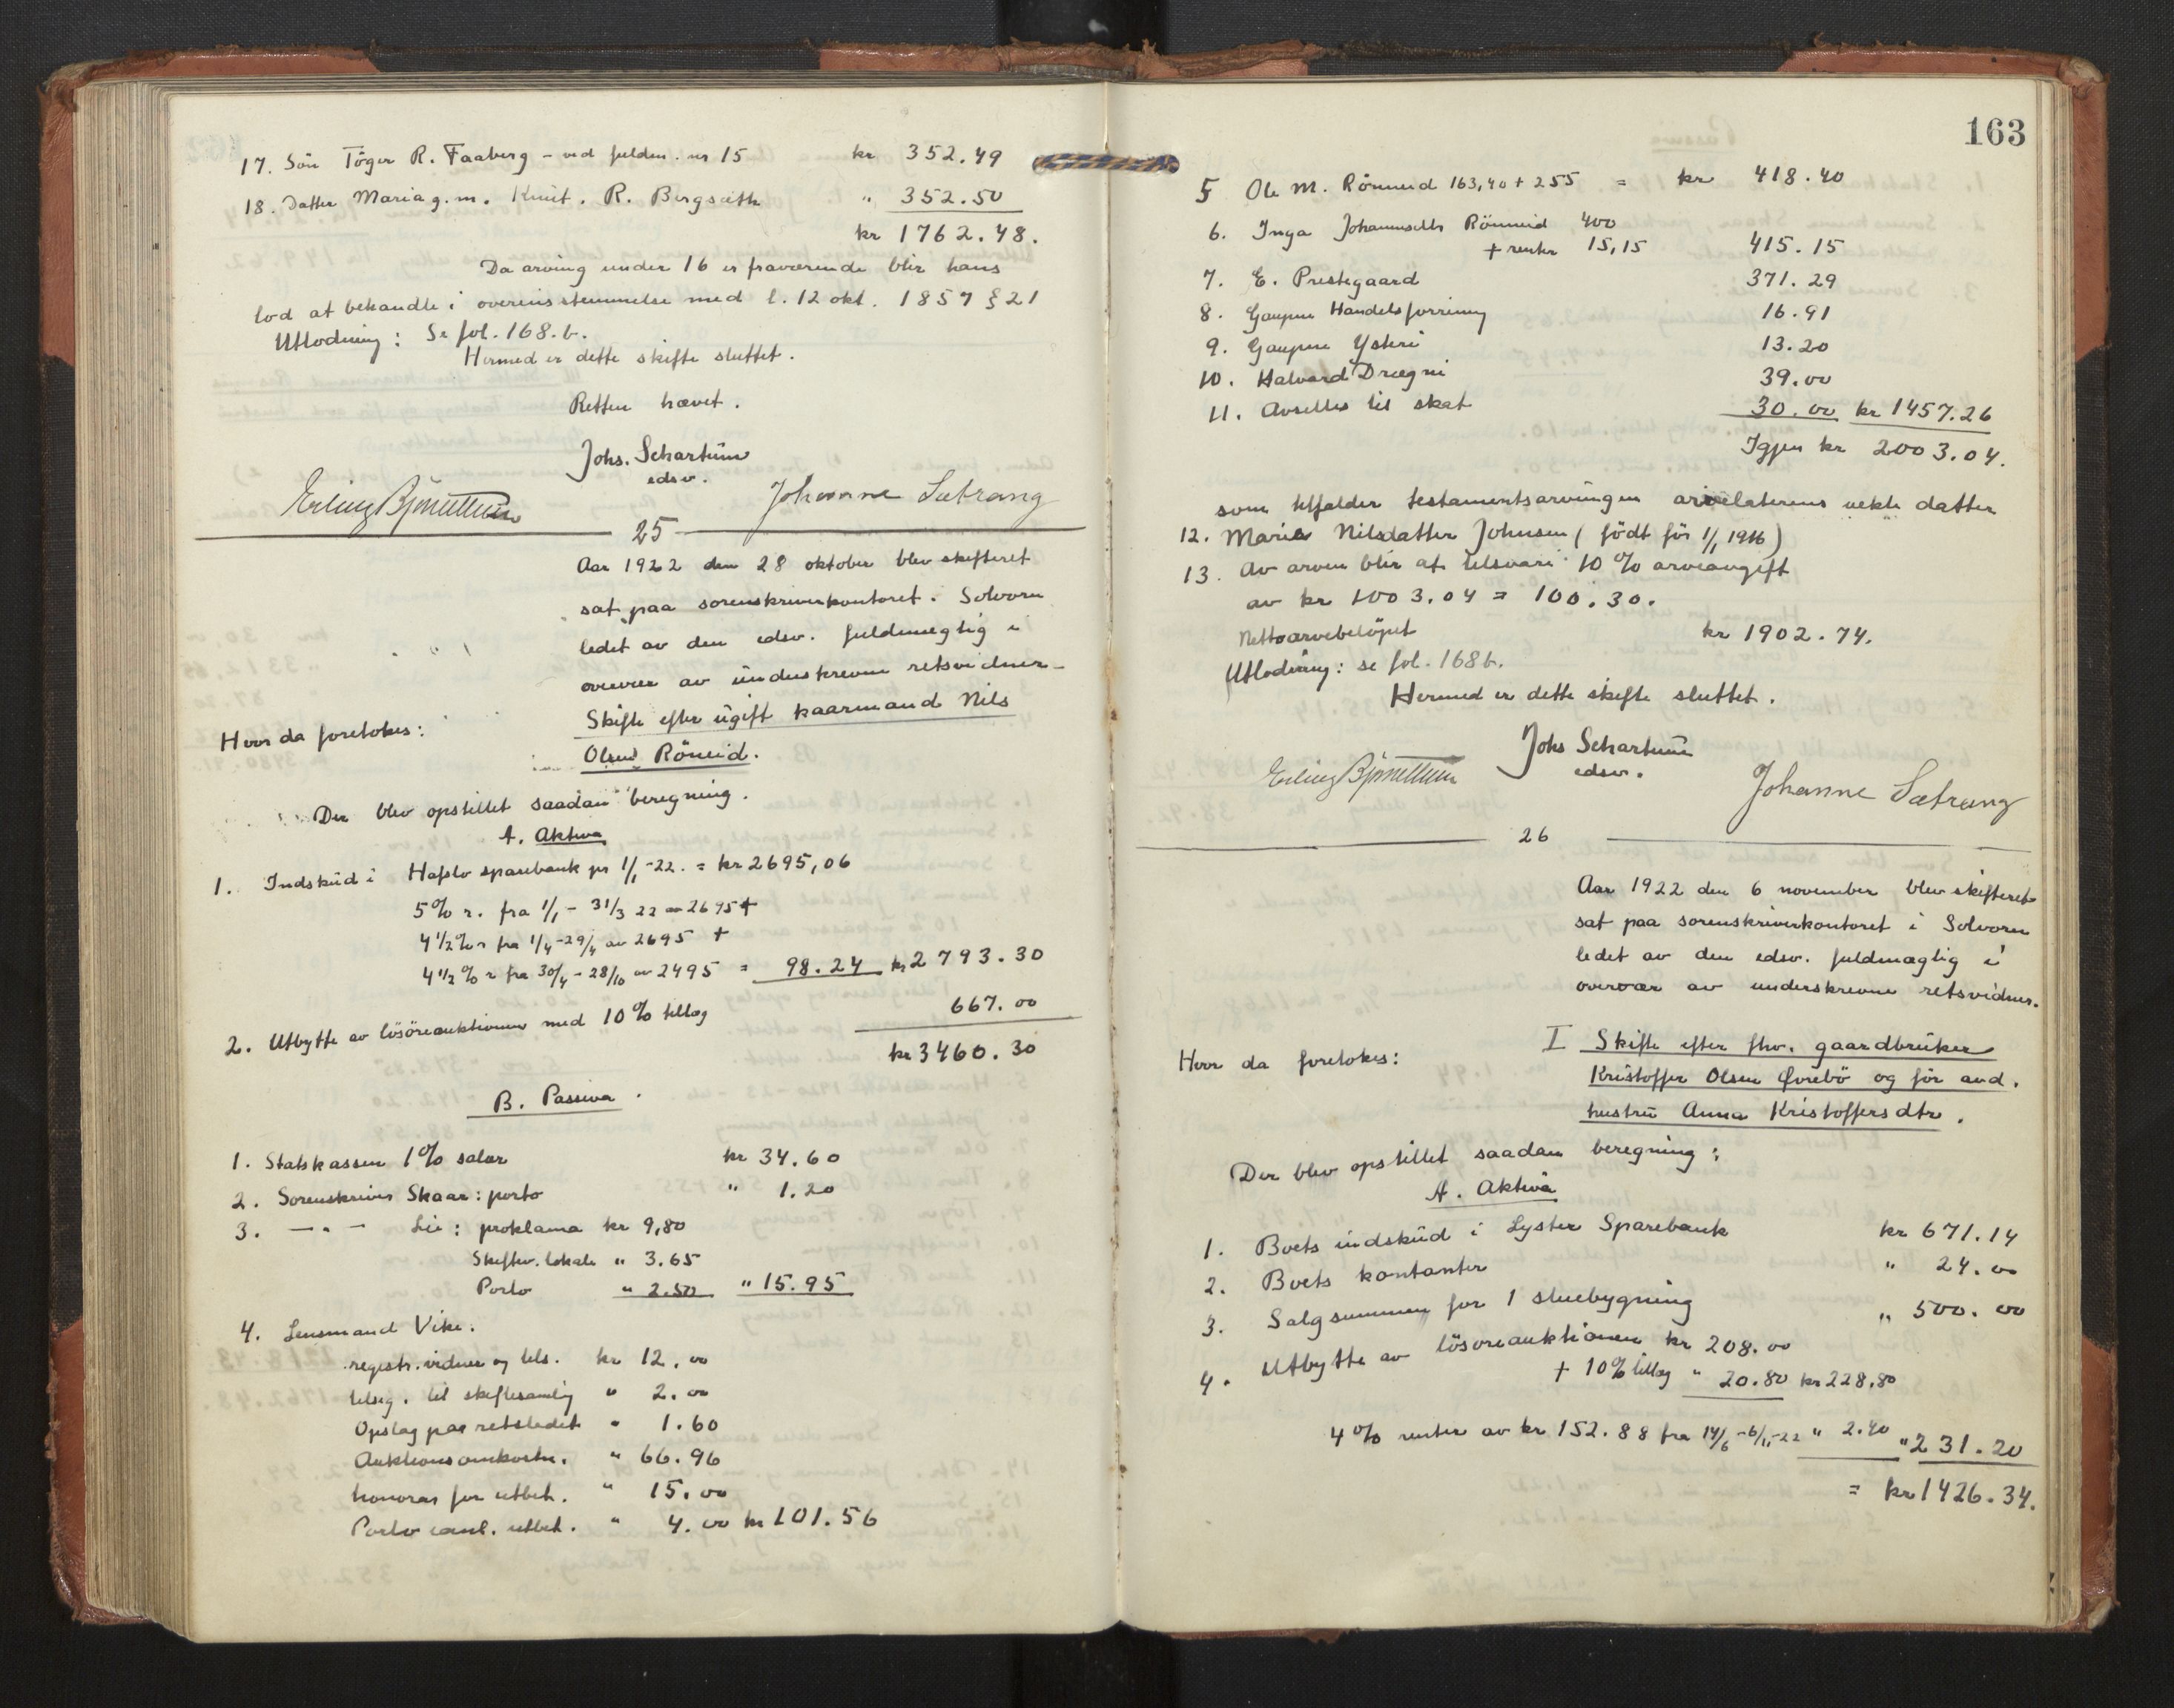 17. Sön Töger R. Faaberg – ved fuldm. nr 15 kr 352.49
18. Datter Maria g.m. Knut. R. Bergsæth " 352.50
kr 1762.48.
Da arving under 16 er fraværende blir hans
lod at behandle i overensstemmelse med l. 12 okt. 1857 § 21
Utlodning: Se fol. 168.b.
Hermed er dette skifte sluttet.
Retten hævet.
Johs. Schartum
edsv.
Erling Johanne Sætrang
25
Aar 1922 den 28 oktober blev skifteret
sat paa sorenskriverkontoret i Solvorn
ledet av den edsv. fuldmægtig i
overvær av underskrevne retsvidner
Hvor da foretokes: Skifte efter ugift kaarmand Nils
Olsen Röneid.
Der blev opstillet saadan beregning.
A. Aktiva
1. Indskud i Hafslo sparebank pr 1/1 -22. = kr 2695,06
5% r. fra 1/1 – 31/3 22 av 2695 +
4 1/2 % r fra 1/4 – 29/4 av 2695 +
4 1/2 % r fra 30/4 – 28/10 av 2495 = 98.24 kr 2793.30
2. Utbytte av lösöreauktionen med 10% tillæg 667.00
kr 3460.30
B. Passiva.
1. Statskassen 1% salær kr 34.60
2. Sorenskriver Skaar: porto " 1.20
3. — " — Lie: proklama kr 9,80
Skiftev. lokale " 3.65
Porto " 2.50 " 15.95
4. Lensmand Vike.
registr. vidner og tils. kr 12.00
tilsig. til skiftesamling " 2.00
Opslag paa retsstedet " 1.60
Auktionsomkostn. " 66.96
honorar for utbet. " 15.00
Porto anl. utbet. " 4.00 kr 101.56
163
5 Ole M. Rönneid 163,40 + 255 = kr 418.40
6. Inga Johannesdtr Rönneid 400
+ renter 15,15 415.15
7. E. Prestegaard 371.29
8. Gaupne Handelsforening 16.91
9. Gaupne Ysteri 13.20
10. Halvard Drægni 39.00
11. Avsettes til skat 30.00 kr 1457.26
Igjen kr 2003.04.
som tilfalder testamentsarvingen arvelaterens uekte datter
12. Maria Nilsdatter Johnsen (födt för 1/1 1916)
13. Av arven blir at tilsvare 10% arveavgift
av kr 1003.04 = 100.30.
Nettoarvebelöpet kr 1902.74.
Utlodning: se fol. 168 b.
Hermed er dette skifte sluttet.
Johs Schartum
edsv.
Erling Johanne Sætrang
26
Aar 1922 den 6 november blev skifteret
sat paa sorenskriverkontoret i Solvorn
ledet av den edsv. fuldmægtig i
overvær av underskrevne retsvidner.
Hvor da foretokes: I Skifte efter fhv. gaardbruker
Kristoffer Olsen Øvrebö og för avd.
hustru Anna Kristoffersdtr.
Der blev opstillet saadan beregning:
A. Aktiva
1. Boets indskud i Lyster Sparebank kr 671.14
2. Boets kontanter " 24.00
3. Salgsummen for 1 stuebygning " 500.00
4. Utbytte av lösöreauktionen kr 208.00
+ 10% tillæg " 20.80 kr 228,80
4% renter av kr 152.88 fra 14/6 – 6/11 -22 " 2.40 " 231.20
= kr 1426.34.